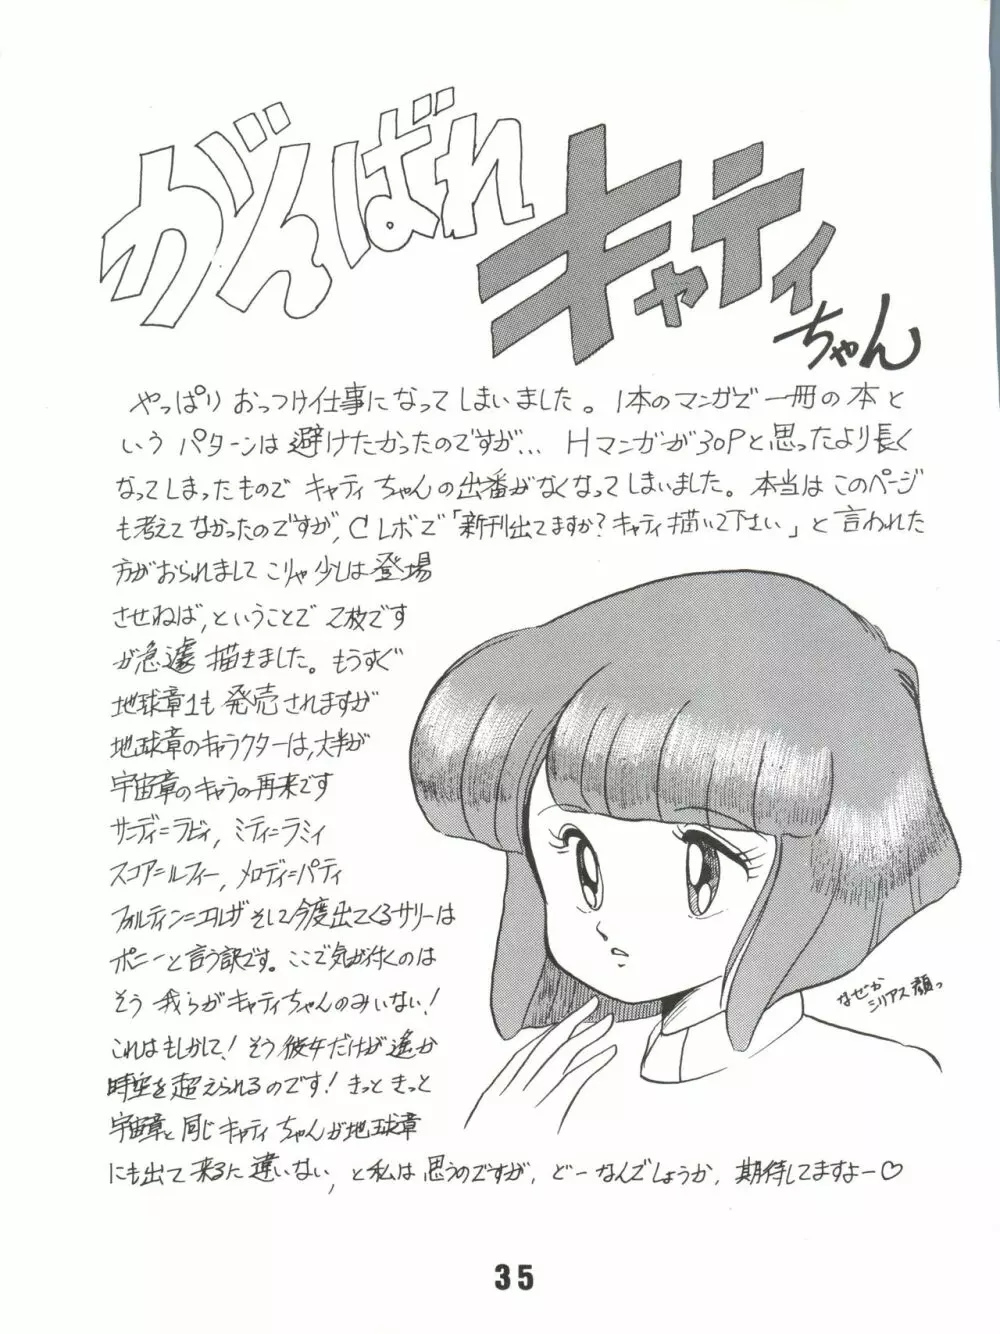 がんばれ
キャティ
ちゃん
やっぱり おっつけ仕事になってしまいました。1本のマンガで一冊の本と
いう パターンは 避けたかったのですが… Hマンガが30Pと思ったより長く
なってしまったもので キャティちゃんの出番がなくなってしまいました。本当は このページ
も考えてなかったのですが、CレボでC「新刊出てますか?キャティ描いて下さい」と 言われた
方がおられまして こりゃ少しは登場
させねば、ということで 2枚です
が急遽 描きました。もうすぐ
地球章1も 発売されますが
地球章のキャラクターは、大半が
宇宙章のキャラの再来です
サンディ=ラビィ, ミティ=ラミィ
スコア=ルフィー, メロディ=パティ
フォルティン=エルザ そして今度出てくるサリーは
ポニーと言う訳です。ここで気が付くのは
そう 我らがキャティちゃんのみいない!
これはもしかして! そう 彼女だけが遥か
時空を超えられるのです! きっと きっと
宇宙章と同じキャティちゃんが地球章
にも出て来るに違いない, と私は思うのですが, どーなんでしょうか, 期待してますよー♡
なぜか
シリアス顔っ
35